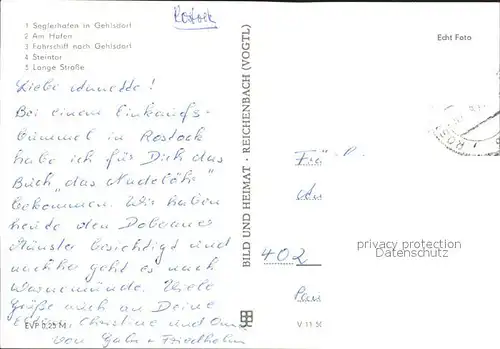 Rostock
1 Seglerhafen in Gehlsdorf
2 Am Hafen
3 Fährschiff nach Gehlsdorf
4 Steintor
5 Lange Straße
Echt Foto
Liebe Annette!
Bei einem Einkaufs-
bummel in Rostock
habe ich für Dich das
Buch „das Nadelöhr"
bekommen. Wir haben
heute den Doberaner
Münster besichtigt und
nachher geht es nach
Warnemünde. Viele
Grüße auch an Deine
Eltern, Christine und Oma
von Gabi + Friedhelm
EVP 0,25 M
BILD UND HEIMAT · REICHENBACH (VOGTL)
Frä
402
privacy protection
Datenschutz
V 11 50